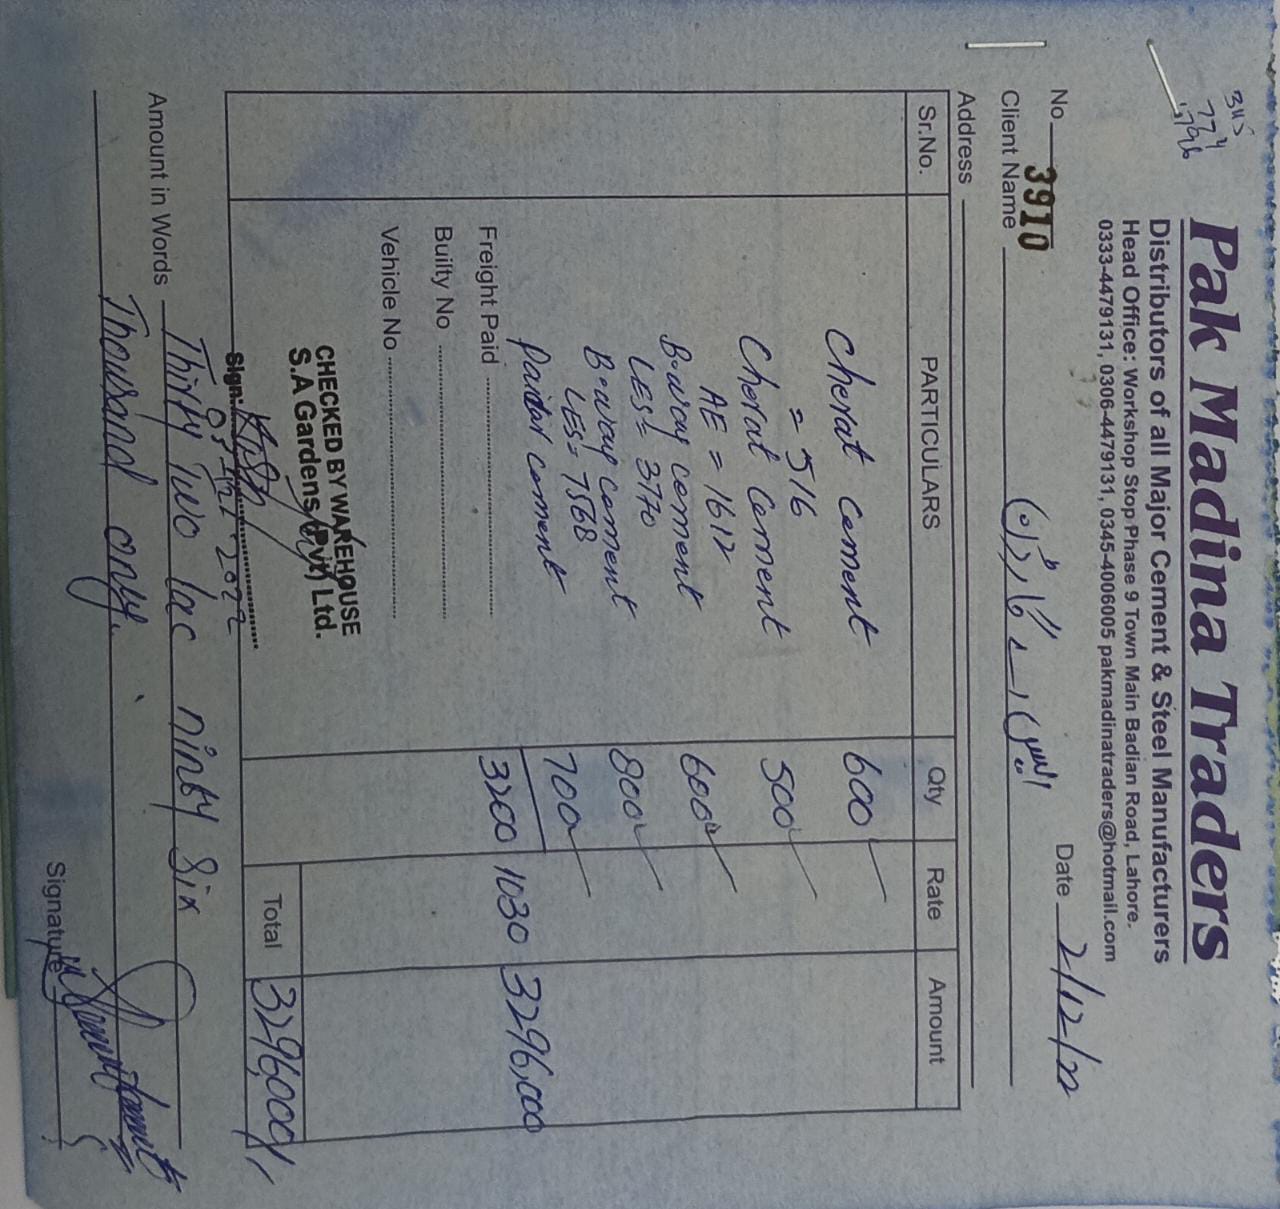 345
774
1796
Pak Madina Traders
Distributors of all Major Cement & Steel Manufacturers
Head Office: Workshop Stop Phase 9 Town Main Badian Road, Lahore.
0333-4479131, 0306-4479131, 0345-4006005 pakmadinatraders@hotmail.com
No 3910 Date 2/12/22
Client Name
Address
Sr.No. PARTICULARS Qty Rate Amount
Cherat cement 600
= 516
Cherat Cement 500
AE = 1612
Bestway cement 600
LES = 3770
Bestway cement 800
LES = 7568
Paidar cement 700
Freight Paid 3200 1030 3296,000
Builty No
Vehicle No
CHECKED BY WAREHOUSE
S.A Gardens (Pvt) Ltd.
Sign:
05-12-2022
Total 3296,000/
Amount in Words Thirty Two lac ninty Six
Thousand only.
Signature